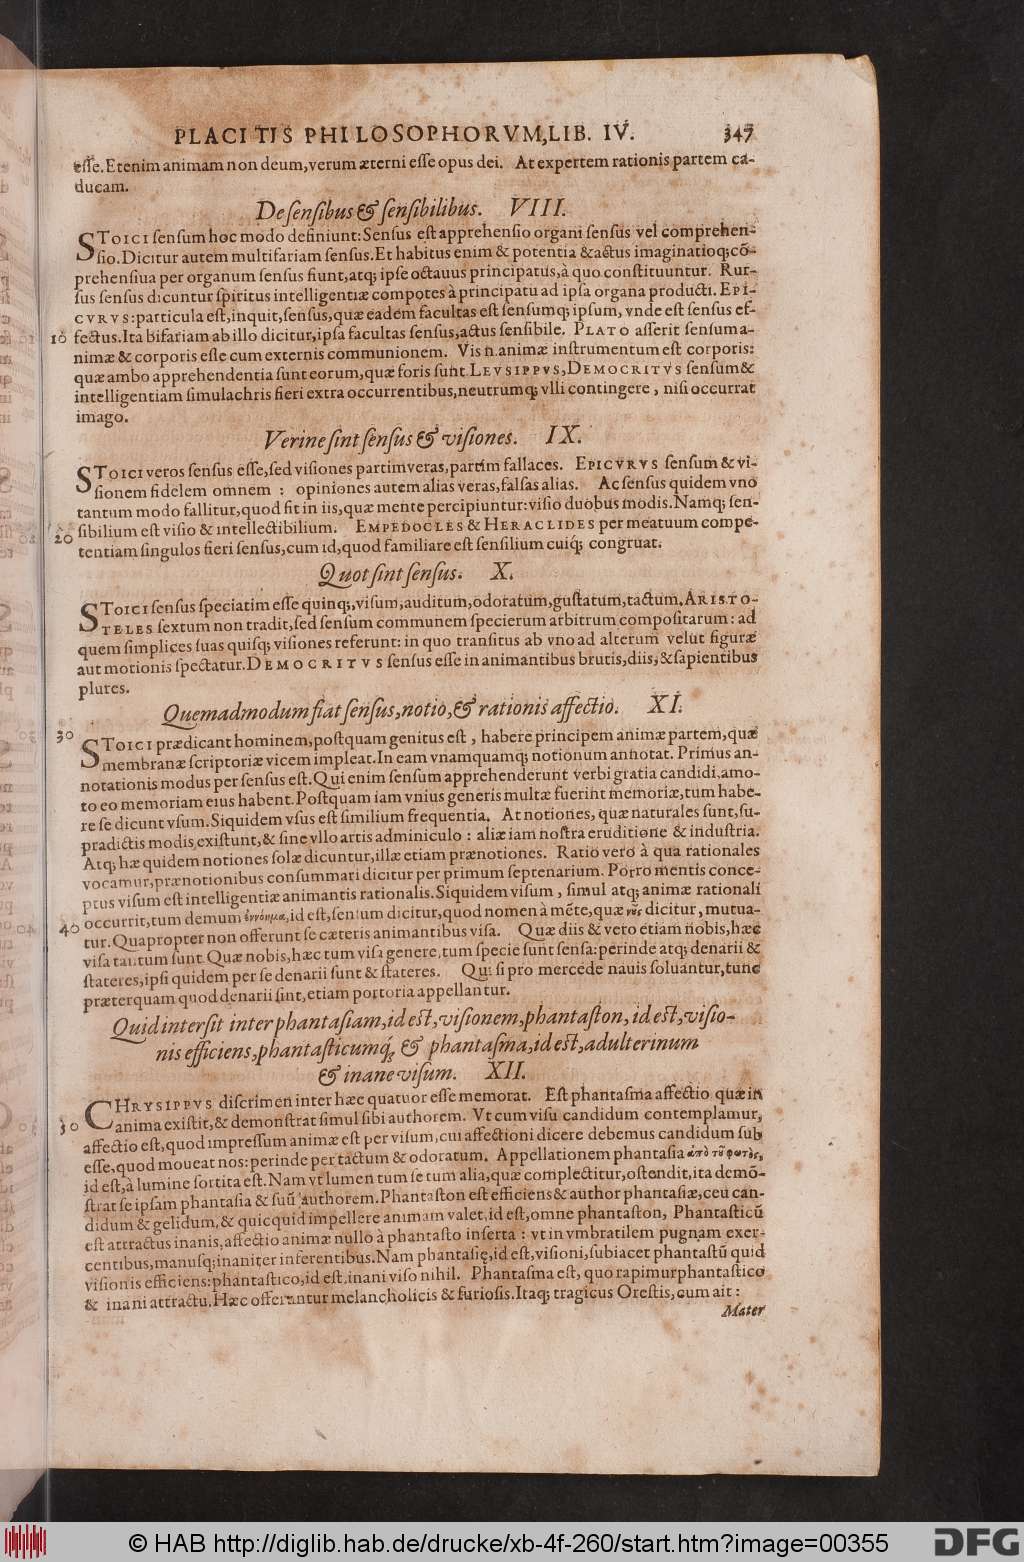 PLACITIS PHILOSOPHORVM, LIB. IV. 347
esse. Etenim animam non deum, verum æterni esse opus dei. At expertem rationis partem ca-
ducam.
De sensibus & sensibilibus. VIII.
STOICI sensum hoc modo definiunt: Sensus est apprehensio organi sensus vel comprehen-
sio. Dicitur autem multifariam sensus. Et habitus enim & potentia & actus imaginatioq; cō-
prehensiua per organum sensus fiunt, atq; ipse octauus principatus, à quo constituuntur. Rur-
sus sensus dicuntur spiritus intelligentiæ compotes à principatu ad ipsa organa producti. EPI-
CVRVS: particula est, inquit, sensus, quæ eadem facultas est sensumq; ipsum, vnde est sensus ef-
10 fectus. Ita bifariam ab illo dicitur, ipsa facultas sensus, actus sensibile. PLATO asserit sensum a-
nimæ & corporis esse cum externis communionem. Vis n. animæ instrumentum est corporis:
quæ ambo apprehendentia sunt eorum, quæ foris sunt. LEVSIPPVS, DEMOCRITVS sensum &
intelligentiam simulachris fieri extra occurrentibus, neutrumq; vlli contingere, nisi occurrat
imago.
Verine sint sensus & visiones. IX.
STOICI veros sensus esse, sed visiones partim veras, partim fallaces. EPICVRVS sensum & vi-
sionem fidelem omnem : opiniones autem alias veras, falsas alias. Ac sensus quidem vno
tantum modo fallitur, quod fit in iis, quæ mente percipiuntur: visio duobus modis. Namq; sen-
20 sibilium est visio & intellectibilium. EMPEDOCLES & HERACLIDES per meatuum compe-
tentiam singulos fieri sensus, cum id, quod familiare est sensilium cuiq; congruat.
Quot sint sensus. X.
STOICI sensus speciatim esse quinq;, visum, auditum, odoratum, gustatum, tactum. ARISTO-
TELES sextum non tradit, sed sensum communem specierum arbitrum compositarum: ad
quem simplices suas quisq; visiones referunt: in quo transitus ab vno ad alterum velut figuræ
aut motionis spectatur. DEMOCRITVS sensus esse in animantibus brutis, diis, & sapientibus
plures.
Quemadmodum fiat sensus, notio, & rationis affectio. XI.
30 STOICI prædicant hominem, postquam genitus est, habere principem animæ partem, quæ
membranæ scriptoriæ vicem impleat. In eam vnamquamq; notionum annotat. Primus an-
notationis modus per sensus est. Qui enim sensum apprehenderunt verbi gratia candidi, amo-
to eo memoriam eius habent. Postquam iam vnius generis multæ fuerint memoriæ, tum habe-
re se dicunt vsum. Siquidem vsus est similium frequentia. At notiones, quæ naturales sunt, su-
pradictis modis existunt, & sine vllo artis adminiculo : aliæ iam nostra eruditione & industria.
Atq; hæ quidem notiones solæ dicuntur, illæ etiam prænotiones. Ratio vero à qua rationales
vocamur, prænotionibus consummari dicitur per primum septenarium. Porro mentis conce-
ptus visum est intelligentiæ animantis rationalis. Siquidem visum, simul atq; animæ rationali
occurrit, tum demum ἐννόημα, id est, sensum dicitur, quod nomen à mēte, quæ νοῦς dicitur, mutua-
40 tur. Quapropter non offerunt se cæteris animantibus visa. Quæ diis & vero etiam nobis, hæc
visa tantum sunt. Quæ nobis, hæc tum visa genere, tum specie sunt sensa: perinde atq; denarii &
stateres, ipsi quidem per se denarii sunt & stateres. Qui si pro mercede nauis soluantur, tunc
præterquam quod denarii sint, etiam portoria appellantur.
Quid intersit inter phantasiam, id est, visionem, phantaston, id est, visio-
nis efficiens, phantasticumq́; & phantasma, id est, adulterinum
& inane visum. XII.
CHRYSIPPVS discrimen inter hæc quatuor esse memorat. Est phantasma affectio quæ in
50 anima existit, & demonstrat simul sibi authorem. Vt cum visu candidum contemplamur,
affectio est, quod impressum animæ est per visum, cui affectioni dicere debemus candidum sub
esse, quod moueat nos: perinde per tactum & odoratum. Appellationem phantasia ἀπὸ τοῦ φωτὸς,
id est, à lumine sortita est. Nam vt lumen tum se tum alia, quæ complectitur, ostendit, ita demō-
strat se ipsam phantasia & suū authorem. Phantaston est efficiens & author phantasiæ, ceu can-
didum & gelidum, & quicquid impellere animam valet, id est, omne phantaston, Phantasticū
est attractus inanis, affectio animæ nullo à phantasto inserta : vt in vmbratilem pugnam exer-
centibus, manusq; inaniter inferentibus. Nam phantasię, id est, visioni, subiacet phantastū quid
visionis efficiens: phantastico, id est, inani viso nihil. Phantasma est, quo rapimur phantastico
& inani attractu. Hæc offerantur melancholicis & furiosis. Itaq; tragicus Orestis, cum ait :
Mater
© HAB http://diglib.hab.de/drucke/xb-4f-260/start.htm?image=00355
DFG